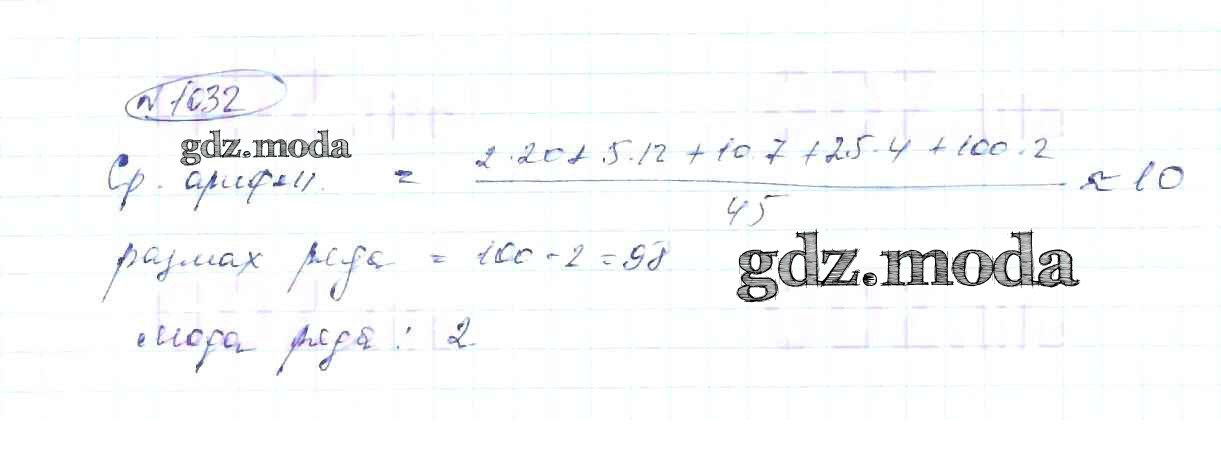 № 1032
gdz.moda
Ср. арифм. = (2·20 + 5·12 + 10·7 + 25·4 + 100·2) / 45 ≈ 10
размах ряда = 100 - 2 = 98
gdz.moda
мода ряда: 2